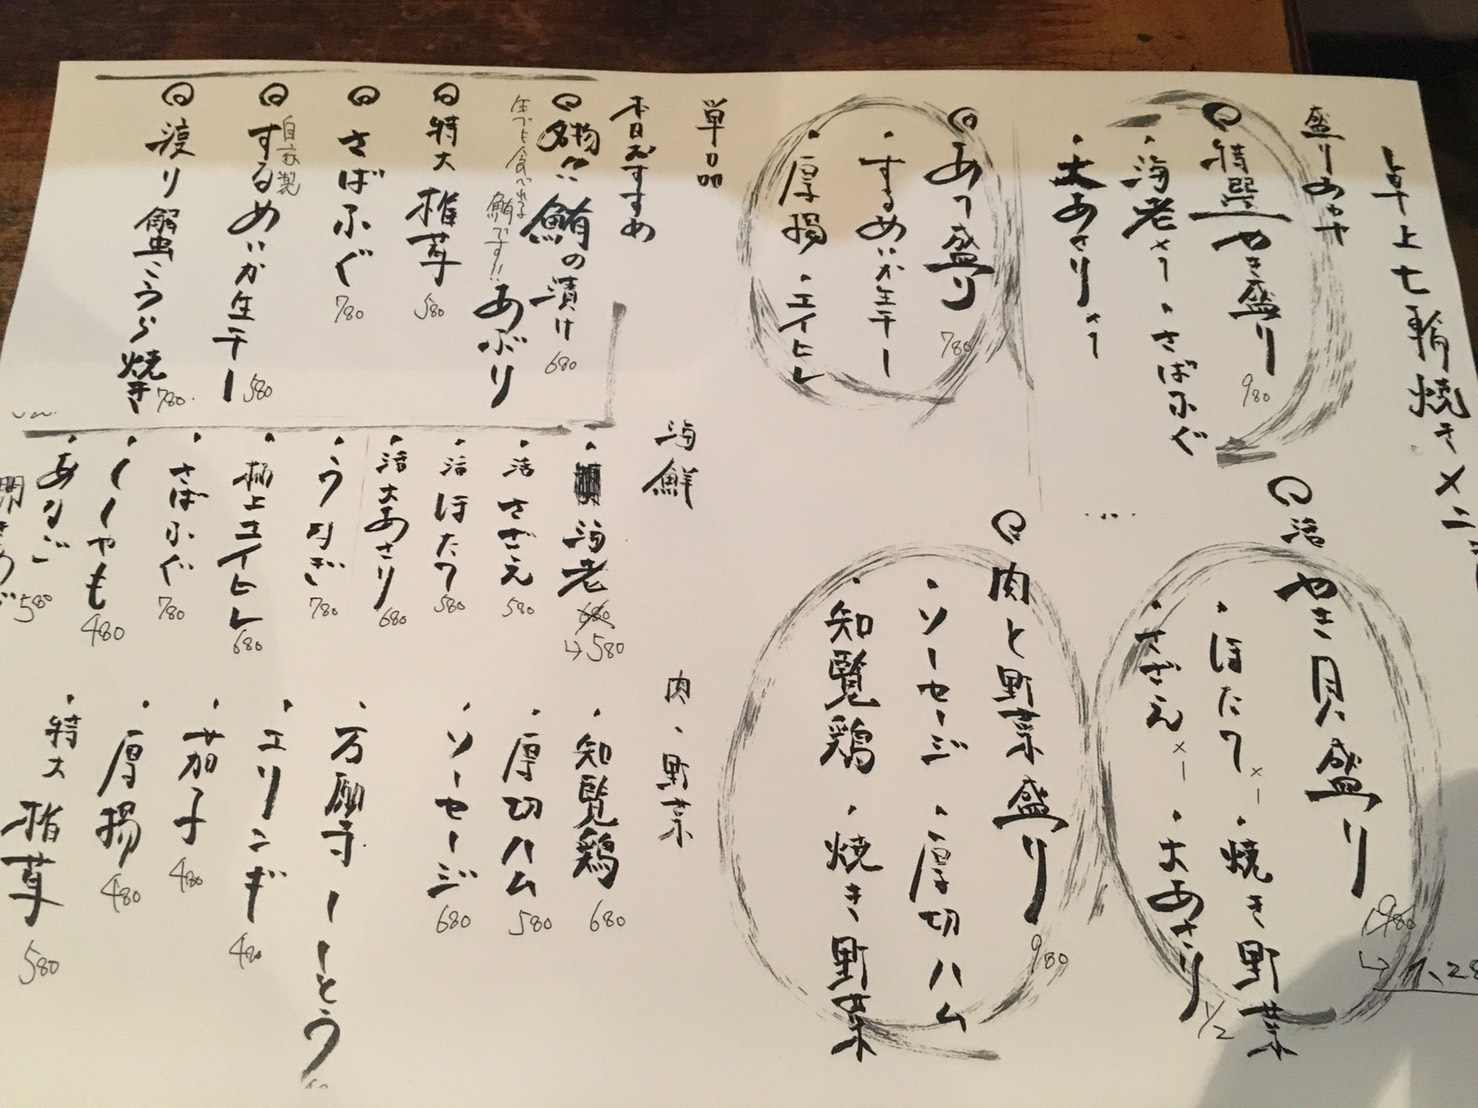 卓上七輪焼きメニ
盛りあわせ
特選やき盛り 980
・海老×1・さばふぐ
・大あさり×1
活やき貝盛り 1,980
→1,28
・ほたて×1・焼き野菜
・さざえ×1・大あさり1/2
あて盛り 780
・するめいか生干し
・厚揚・エイヒレ
肉と野菜盛り 980
・ソーセージ・厚切ハム
・知覧鶏・焼き野菜
単品
本日おすすめ
名物!!鮪の漬け 680
あぶり
生でも食べれる鮪です!!
特大椎茸 580
さばふぐ 780
自家製
するめいか生干し 580
渡り蟹こうら焼き 780
海鮮
・海老 680
→580
・活さざえ 580
・活ほたて 580
・活大あさり 680
・うなぎ 780
・極上エイヒレ 680
・さばふぐ 780
・ししゃも 480
・あなご 580
肉・野菜
・知覧鶏 680
・厚切ハム 580
・ソーセージ 680
・万願寺しとう
・エリンギ 480
・茄子 480
・厚揚 480
・特大椎茸 580